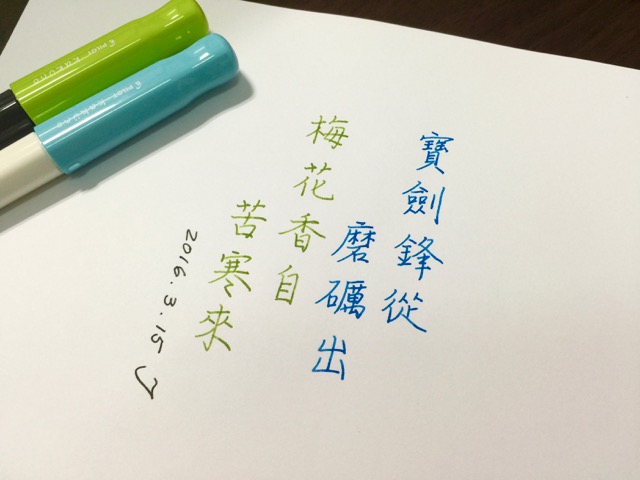 寶劍鋒從
磨礪出
梅花香自
苦寒來
2016.3.15 J
PILOT KAKUNO
PILOT